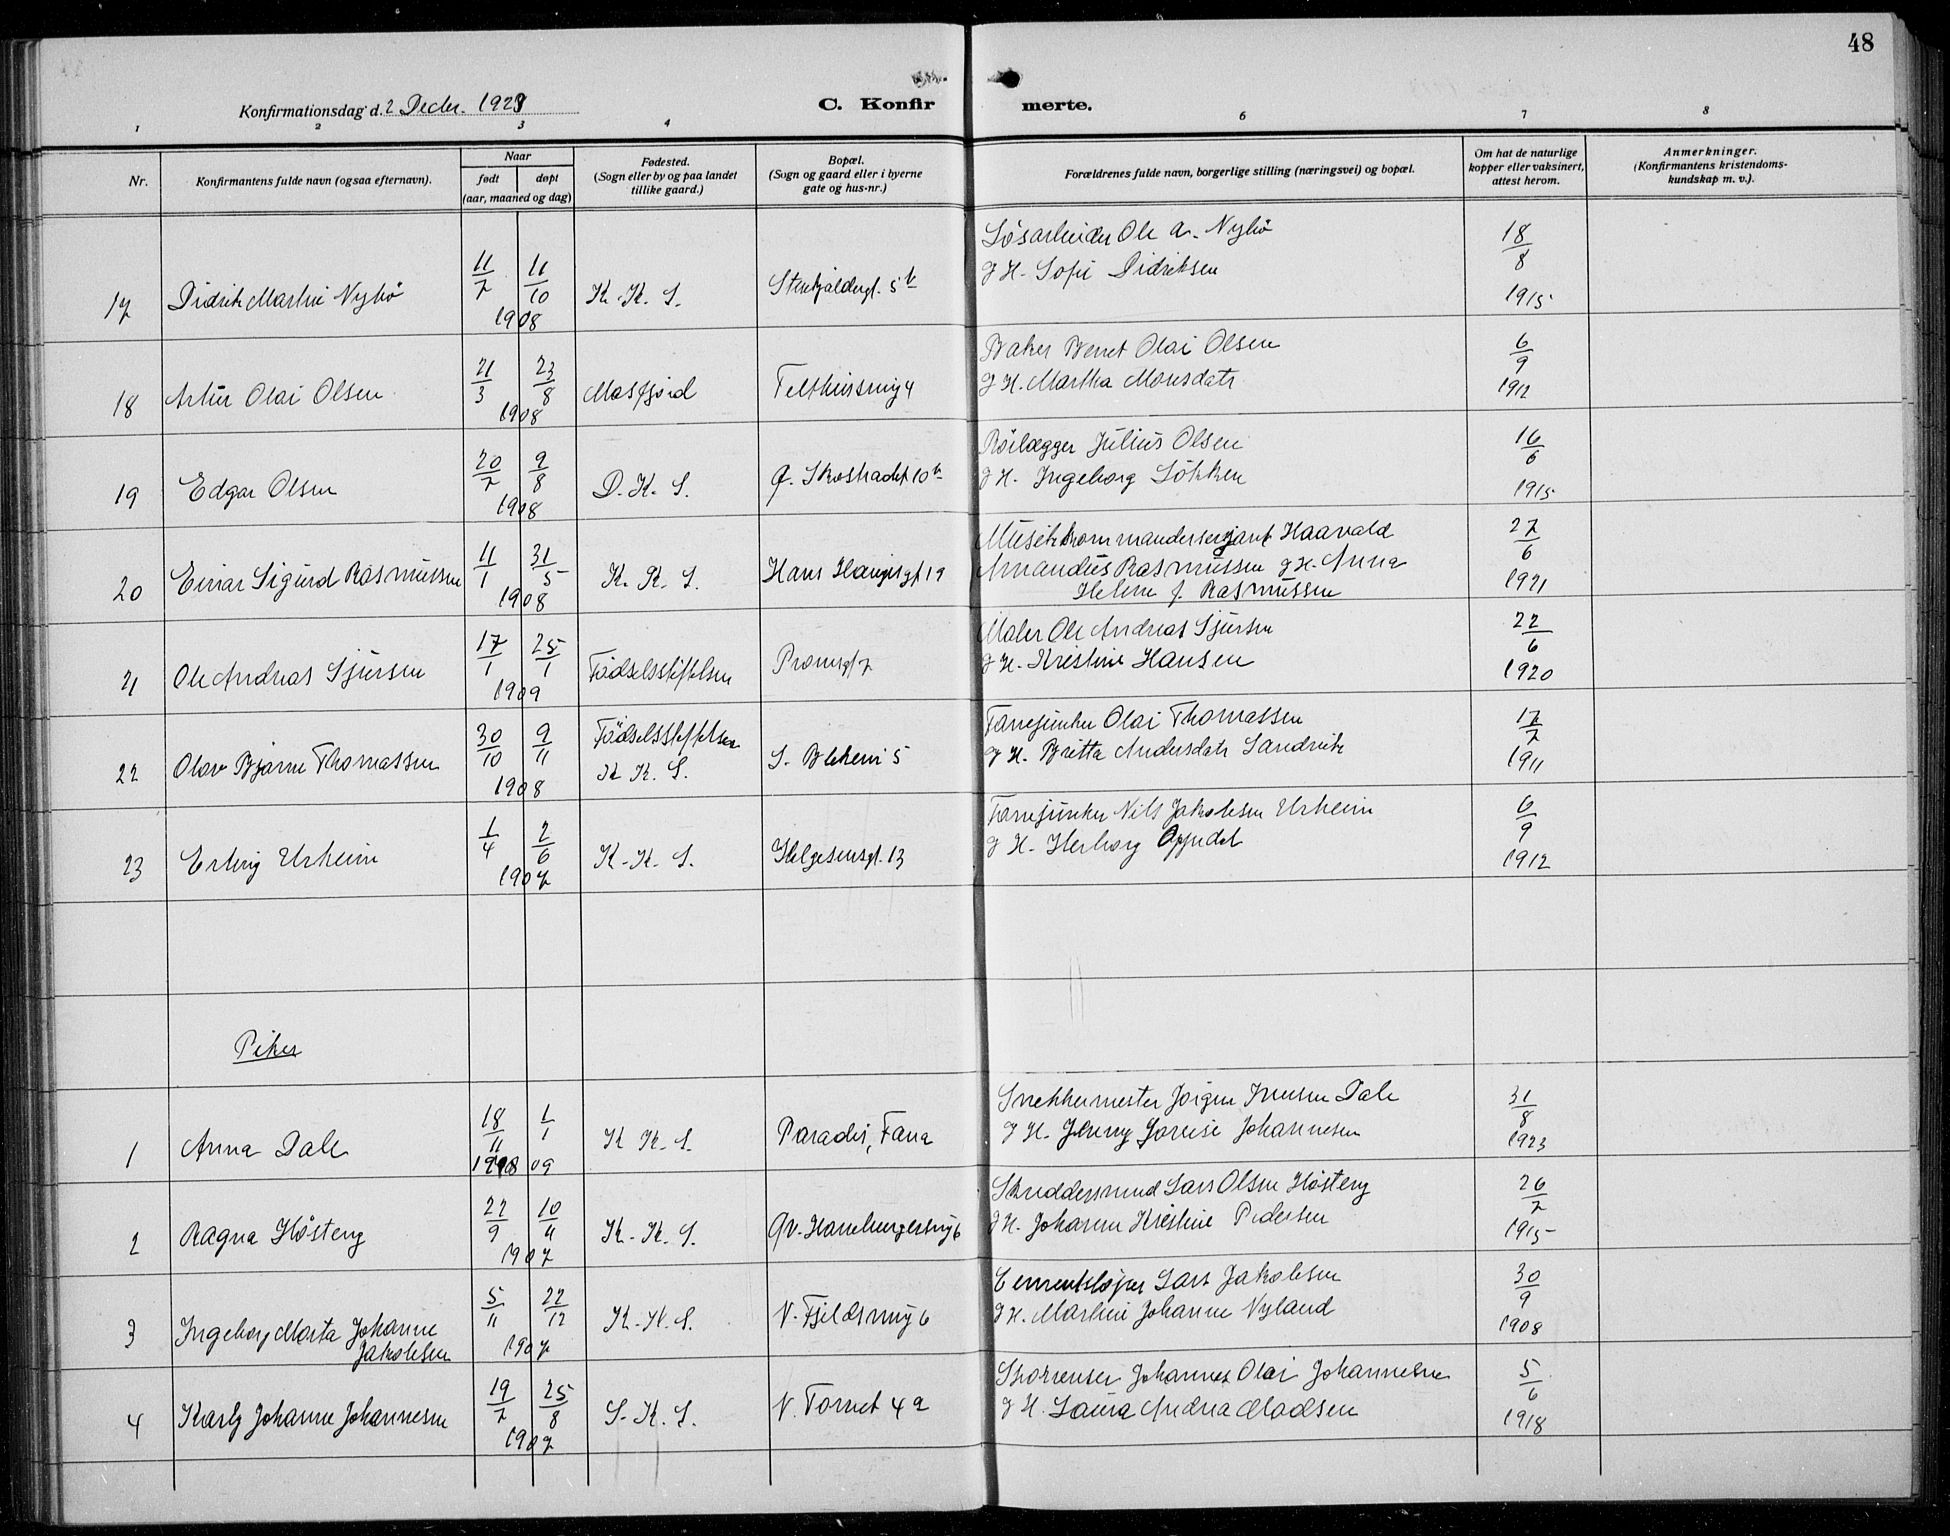 48
Konfirmationsdag d. 2 Decbr. 1923
C. Konfirmerte.
1 2 3 4 6 7 8
Nr.
Konfirmantens fulde navn (ogsaa efternavn).
Naar
født
døpt
(aar, maaned og dag)
Fødested.
(Sogn eller by og paa landet
tillike gaard.)
Bopæl.
(Sogn og gaard eller i byerne
gate og hus-nr.)
Forældrenes fulde navn, borgerlige stilling (næringsvei) og bopæl.
Om hat de naturlige
kopper eller vaksinert,
attest herom.
Anmerkninger.
(Konfirmantens kristendoms-
kundskap m. v.).
17 Didrik Martin Nybö 11/7 11/10 1908 K. K. S. 5b
Løsarbeider Ole A. Nybö
g H. Sofie Didriksen
18/8 1915
18 Artur Olai Olsen 21/3 23/8 1908 Masfjord 4
Baker Bernt Olai Olsen
g H. Martha Monsdatr
6/9 1912
19 Edgar Olsen 20/7 9/8 1908 D. K. S. 10b
Rörlægger Julius Olsen
g H. Ingeborg Lökken
16/6 1915
20 Einar Sigurd Rasmussen 11/1 31/5 1908 K. K. S. Hans Haugesgt 19
Musikkommandersersjant Haavald
Amandus Rasmussen g H. Anna
Helene f. Rasmussen
27/6 1921
21 Ole Andreas Sjursen 17/1 25/1 1909 Födselsstiftelsen Promsgt 7
Maler Ole Andreas Sjursen
g H. Kristine Hansen
22/6 1920
22 Olav Bjarne Thomassen 30/10 9/11 1908 Födselsstiftelsen
K K. S. S. Blekevei 5
Garvejunker Olai Thomassen
g H. Britta Andersdatr Sandvik
17/7 1911
23 Erling Urheim 1/4 2/6 1907 K. K. S. Helgesensgt. 13
Nils Jakobsen Urheim
g H. Herborg Oppedal
6/9 1912
Piker
1 Anna Dale 18/11 1908 1/1 09 K K. S. Paradis, Fana
Snekkermester Jörgen Iversen Dale
g H. Jenny Lovise Johannesen
31/8 1923
2 Ragna Hösteng 22/9 10/11 1907 K. K. S. 6
Skreddersvend Lars Olsen Hösteng
g H. Johanne Kristine Pedersen
26/7 1915
3 Ingeborg Marta Johanne
Jakobsen 5/11 22/12 1907 K. K. S. N. Fjeldsmug 6
Cementstøper Lars Jakobsen
g H. Martine Johanne Nyland
30/9 1908
4 Karly Johanne Johannesen 19/7 25/8 1907 S. K. S. N. Tornet 4 a
Johannes Olai Johannesen
g H. Laura Andrea Madsen
5/6 1918